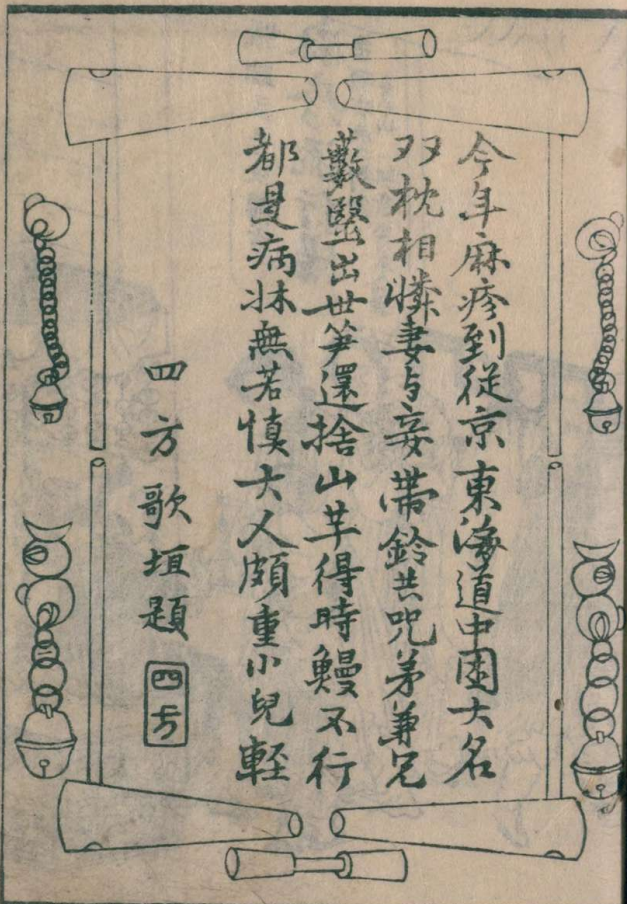 今年麻疹到従京東海道中困大名
双枕相憐妻与妾帯鈴共咒弟兼兄
藪醫出世笋還捨山芋得時鰻不行
都是病牀無若慎大人頗重小児軽
四方歌垣題
四方